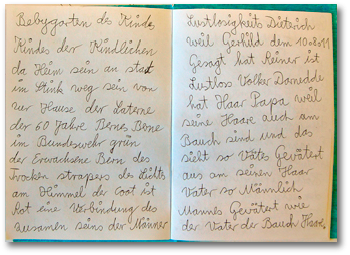 Babygarten des Kindes
Kindes der Kindlichen
da Heim sein an statt
im Stink weg sein von
zur Hause der Laterne
der 60 Jahre Benes Bene
in Bundeswehr grün
der Erwachsene Bern des
Trocken strapers des Lichts
am Himmel der Coot ist
Rot eine Verbindung des
zusamen seins der Männer
Lustlosigkeit Dieterich
weil Gerhild dem
Gesagt hat Reiner ist
Lustlos Volker
hat Haar Papa weil
seine Haare auch am
Bauch sind und das
sieht so Vätes Gevätert
aus am seinen Haar
Vater so Männlich
Mannes Gevätert wie
der Vater der Bauch Haare